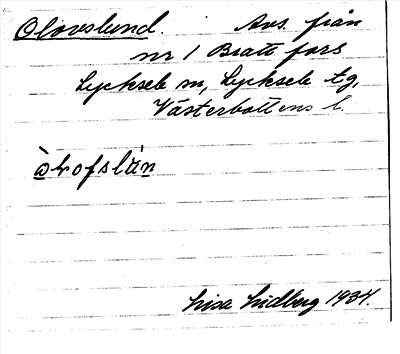 Olovslund. Avs. från
nr 1 Brattfors
Lycksele sn, Lycksele tg,
Västerbottens l.
Lisa Lidberg 1934.